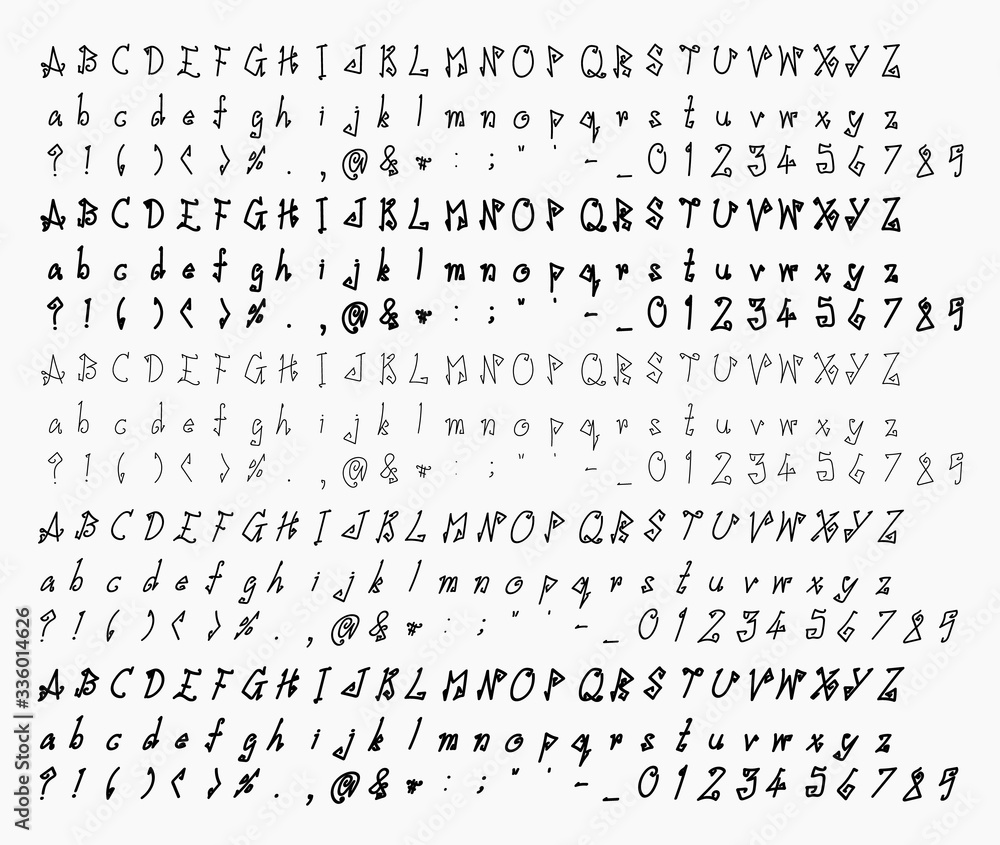 A B C D E F G H I J K L M N O P Q R S T U V W X Y Z
a b c d e f g h i j k l m n o p q r s t u v w x y z
? ! ( ) < > % . , @ & * : ; " ' - _ 0 1 2 3 4 5 6 7 8 9
A B C D E F G H I J K L M N O P Q R S T U V W X Y Z
a b c d e f g h i j k l m n o p q r s t u v w x y z
? ! ( ) < > % . , @ & * : ; " ' - _ 0 1 2 3 4 5 6 7 8 9
A B C D E F G H I J K L M N O P Q R S T U V W X Y Z
a b c d e f g h i j k l m n o p q r s t u v w x y z
? ! ( ) < > % . , @ & * : ; " ' - _ 0 1 2 3 4 5 6 7 8 9
A B C D E F G H I J K L M N O P Q R S T U V W X Y Z
a b c d e f g h i j k l m n o p q r s t u v w x y z
? ! ( ) < > % . , @ & * : ; " ' - _ 0 1 2 3 4 5 6 7 8 9
A B C D E F G H I J K L M N O P Q R S T U V W X Y Z
a b c d e f g h i j k l m n o p q r s t u v w x y z
? ! ( ) < > % . , @ & * : ; " ' - _ 0 1 2 3 4 5 6 7 8 9
Adobe Stock | #336014626